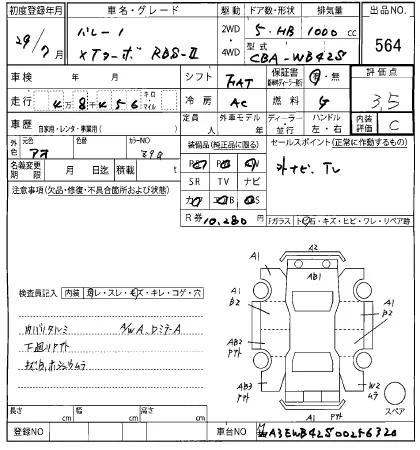 初度登録年月 車名・グレード 駆動 ドア数・形状 排気量 出品NO
29/7月 バレーノ 2WD 5・HB 1000cc 564
XTターボ RBS-II 4WD 型式 CBA-WB42S
車検 年 月 シフト FAT 保証書 有・無 評価点
走行 48456 キロ マイル 冷房 AC 燃料 G 3.5
車歴 自家用・レンタ・事業用( ) 定員 人 外車モデル 年 ディーラー・並行 ハンドル 左・右 内装評価 C
外色 元色 アオ 色替 カラーNO
装備品(純正品に限る) セールスポイント(正常に作動するもの)
名義変更期限 月 日迄 積載 t
外ナビ、TV
SR TV ナビ
注意事項(欠品・修復・不具合箇所および状態)
R券 10,280 円
Fガラス ト石・キズ・ヒビ・ワレ・リペア跡
検査員記入 内装 スレ・キズ・キレ・コゲ・穴
A/W A、ロミラーA
A2
A1 AB1 A1
B2 B2
AB2
AB3 W2
A1 スペア
長さ cm 幅 cm 高さ cm
登録NO 車台NO MA3EWB42S00256320